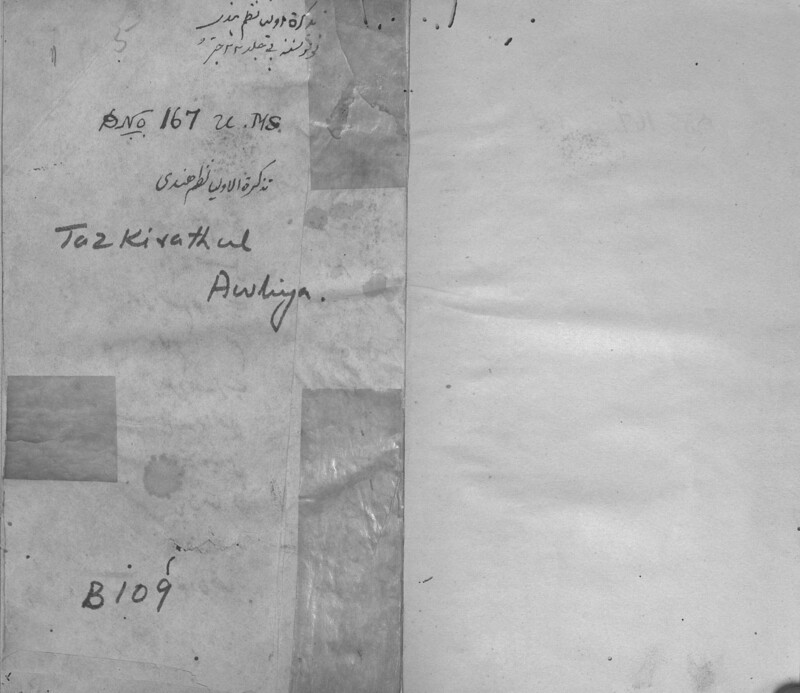 تذکرة اولیا نظم ہندی
5
S No 167 U. MS.
تذکرة الاولیا نظم هندی
Tazkirathul
Awliya.
B 109